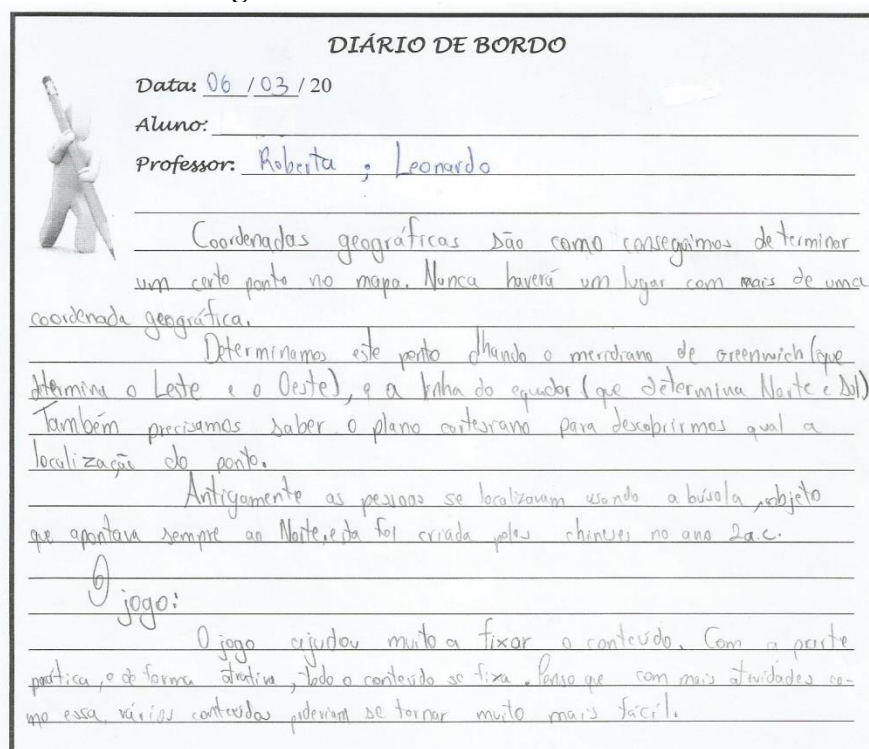 DIÁRIO DE BORDO
Data: 06 / 03 / 20
Aluno:
Professor: Roberta ; Leonardo
Coordenadas geográficas são como conseguimos determinar
um certo ponto no mapa. Nunca haverá um lugar com mais de uma
coordenada geográfica.
Determinamos este ponto olhando o meridiano de Greenwich (que
determina o Leste e o Oeste), e a linha do equador (que determina Norte e Sul)
Também precisamos saber o plano cartesiano para descobrirmos qual a
localização do ponto.
Antigamente as pessoas se localizavam usando a búsola, objeto
que apontava sempre ao Norte, esta foi criada pelos chineses no ano 2a.c.
O jogo:
O jogo ajudou muito a fixar o conteúdo. Com a parte
prática, e de forma atrativa, todo o conteúdo se fixa. Penso que com mais atividades co-
mo essa, vários conteúdos poderiam se tornar muito mais fácil.